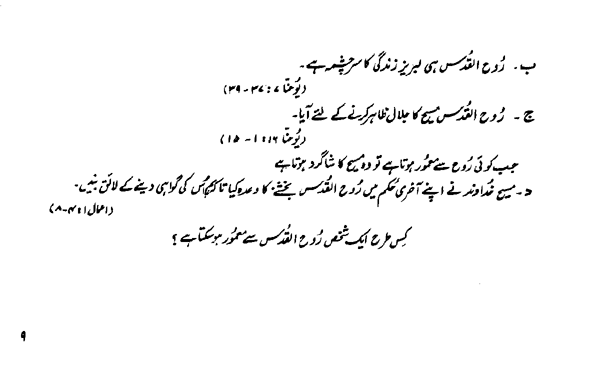 ب۔ رُوح القُدس ہی لبریز زندگی کا سرچشمہ ہے۔
(یُوحنّا ۷: ۳۷-۳۹)
ج۔ رُوح القُدس مسیح کا جلال ظاہر کرنے کے لئے آیا۔
(یُوحنّا ۱۶: ۱-۱۵)
جب کوئی رُوح سے معمُور ہوتا ہے تو وہ مسیح کا شاگرد ہوتا ہے
د۔ مسیح خُداوند نے اپنے آخری حُکم میں رُوح القُدس بخشنے کا وعدہ کیا تاکہ ہم اُس کی گواہی دینے کے لائق بنیں۔
(اعمال ۱: ۴-۸)
کِس طرح ایک شخص رُوح القُدس سے معمُور ہو سکتا ہے؟
۹